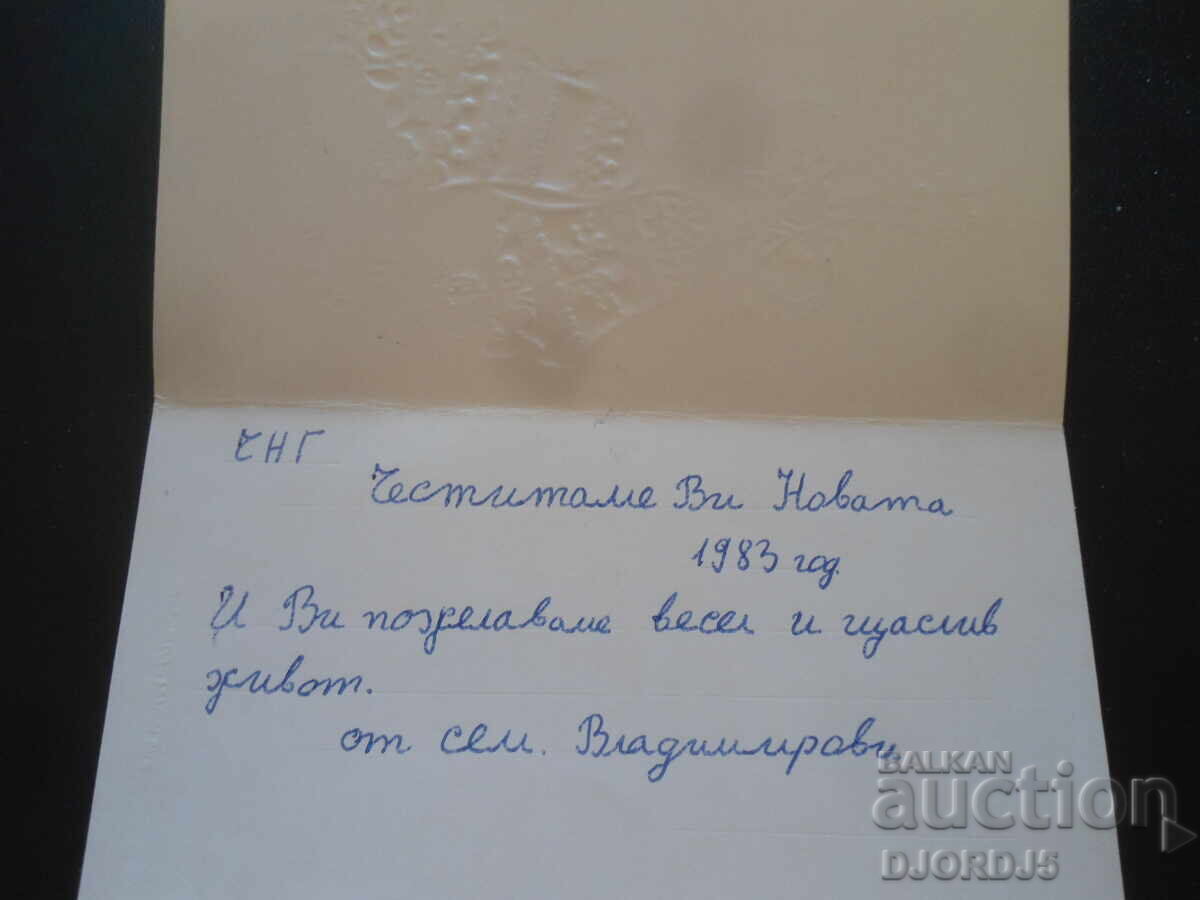 ЧНГ
Честитаме Ви Новата
1983 год.
И Ви пожелаваме весел и щаслив
живот.
от сем. Владимирови
BALKAN
auction
DJORDJ5